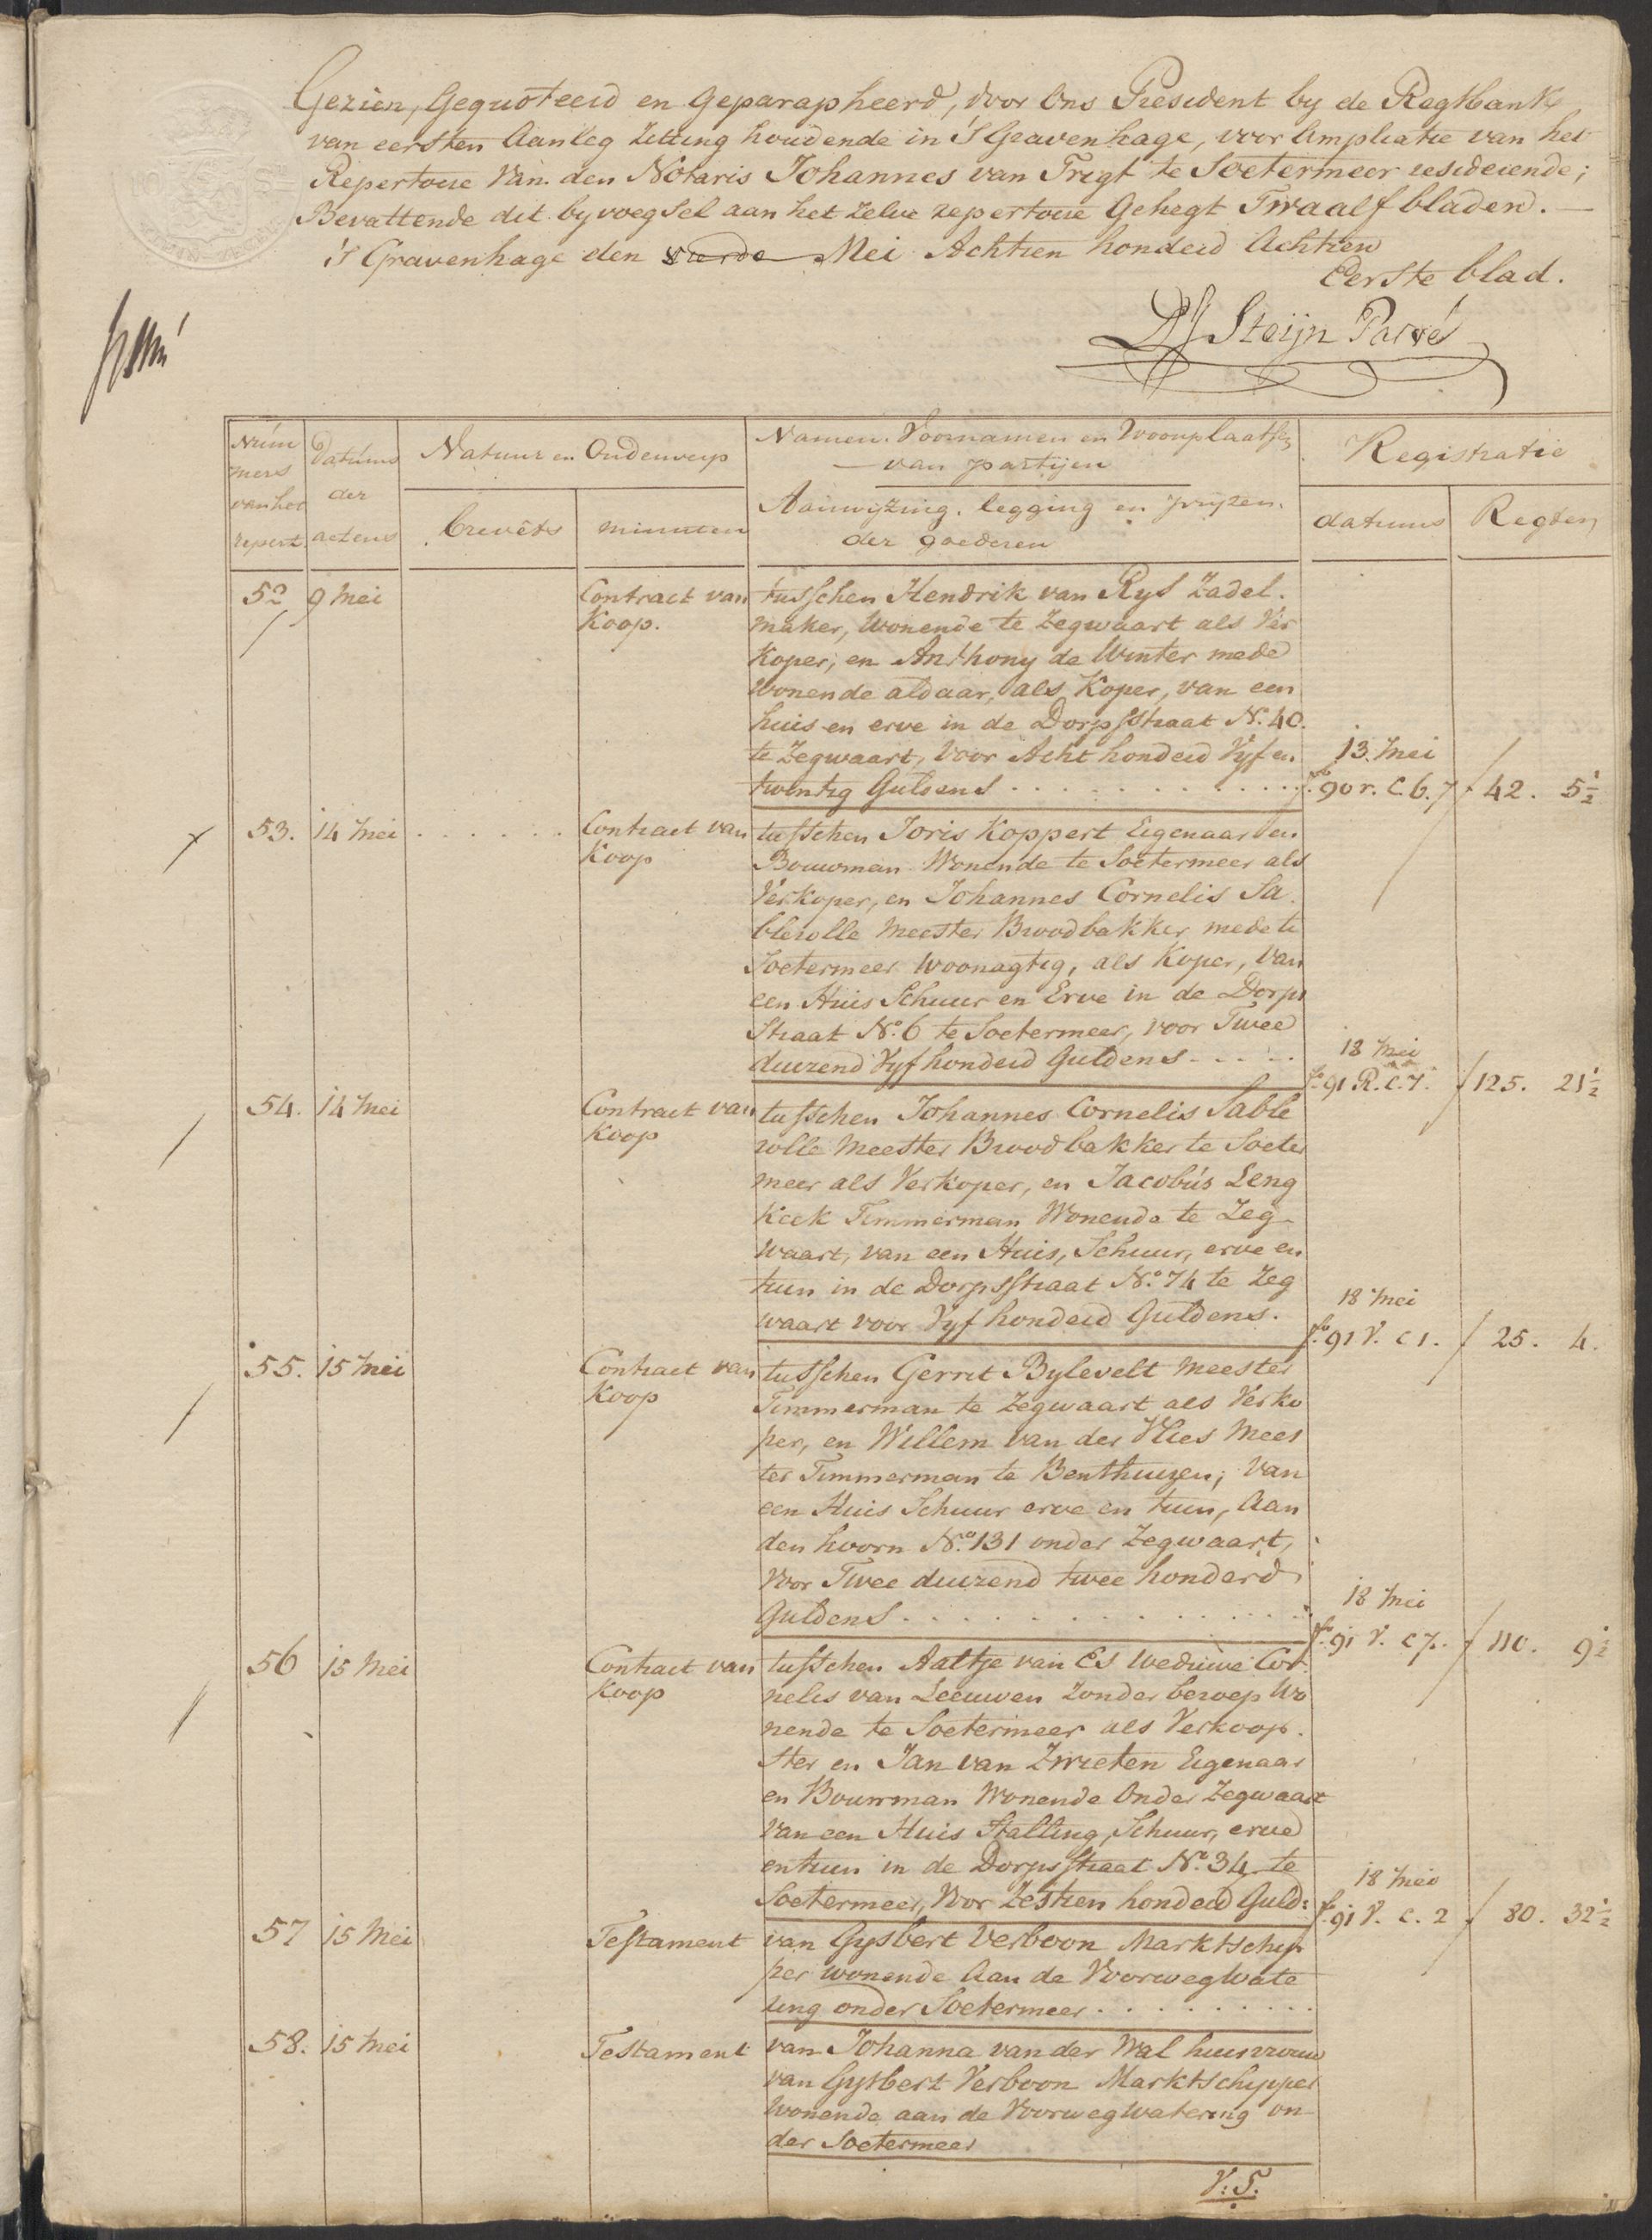 Gezien, Gequoteerd en Geparapheerd, door Ons President by de Regtbank
van eersten Aanleg Zitting houdende in 'S Gravenhage, voor Ampliatie van het
Repertoire van den Notaris Johannes van Trigt te Soetermeer resideerende;
Bevattende dit byvoegsel aan het Zelve repertoire Gehegt Twaalf bladen. —
'S Gravenhage den vierde Mei Achtien honderd Achtien
Eerste blad.
DJ Steijn Parvé
Num
mers
van het
repert.
Datums
der
actens
Natuur en Onderwerp
brevêts
minuten
Namen. Voornamen en Woonplaatsen
— van partijen
Aanwijzing. legging en prijzen.
der goederen
Registratie
datums
Regten
52
9 Mei
Contract van
Koop.
tusschen Hendrik van Rys Zadel.
maker, Wonende te Zegwaart als Ver
Koper; en Anthony de Winter mede
Wonende aldaar, als Koper, van een
huis en erve in de Dorpsstraat N. 40.
te Zegwaart, voor Acht honderd Vyf en
twintig Guldens . . . . . . . . . .
13. Mei
fo. 90 r. C. 6. 7
f 42. 5½
53.
14 Mei . . . . . .
Contract van
Koop
tusschen Joris Koppert Eigenaar en
Bouwman Wonende te Soetermeer als
Verkoper, en Johannes Cornelis Sa.
blerolle Meester Broodbakker mede te
Soetermeer Woonagtig, als Koper, van
een Huis Schuur en Erve in de Dorps
Straat No. 6 te Soetermeer, voor Twee
duizend Vyf honderd Guldens . . . . .
18 Mei
fo 91 R. C. 7.
f 125. 21½
54.
14 Mei
Contract van
Koop
tusschen Johannes Cornelis Sable
rolle Meester Broodbakker te Soeter
meer als Verkoper, en Jacobus Leng
Keek Timmerman Wonende te Zeg-
waart, van een Huis, Schuur, erve en
tuin in de Dorpsstraat No. 74 te Zeg
waart voor Vyf honderd Guldens.
18 Mei
fo. 91 V. C 1.
f 25. 4.
55.
15 Mei
Contract van
Koop
tusschen Gerrit Bylevelt Meester
Timmerman te Zegwaart als Verko
per, en Willem van der Vlies Mees
ter Timmerman te Benthuizen; van
een Huis Schuur erve en tuin, Aan
den hoorn No. 131 onder Zegwaart,
Voor Twee duizend twee honderd
Guldens . . . . . . . . . . . . .
18 Mei
fo. 91 V. C 7.
f 110. 9½
56
15 Mei
Contract van
Koop
tusschen Aaltje van Es Weduwe Cor.
nelis van Leeuwen Zonder beroep Wo
nende te Soetermeer als Verkoop.
ster en Jan van Zwieten Eigenaar
en Bouwman Wonende Onder Zegwaart
van een Huis Stalling, Schuur, erve
en tuin in de Dorpsstraat No. 34 te
Soetermeer, Voor Zestien honderd Guld:
18 Mei
fo. 91 V. C. 2
f 80. 32½
57
15 Mei
Testament
van Gysbert Verboon Marktschip
per wonende Aan de Voorwegwate
ring onder Soetermeer . . . . . . . . .
58.
15 Mei
Testament
van Johanna van der Wal huisvrouw
van Gysbert Verboon Marktschipper
Wonende aan de Voorwegwatering on
der Soetermeer
V: S.